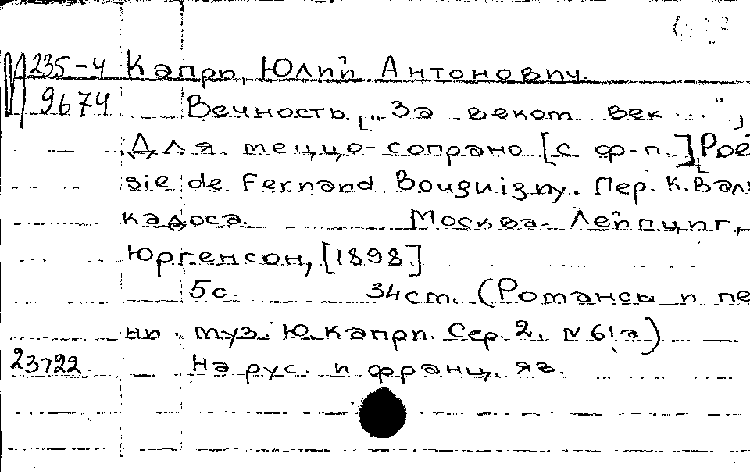 М 235-4 Капри, Юлий Антонович.
9674 Вечность ["За веком век..."]
Для меццо-сопрано [с ф-п.] Poe
sie de Fernand Bouguigny. Пер. К. Валь
кадоса. Москва-Лейпциг,
Юргенсон, [1898]
5с. 34см. (Романсы и пе
ни муз. Ю. Капри. Сер. 2. N 61а)
23722 На рус. и франц. яз.